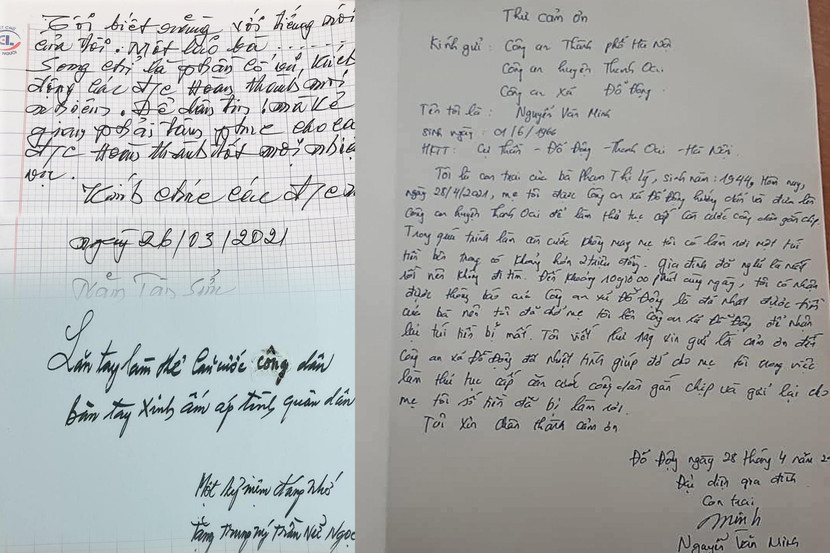 Tôi biết với tiếng nói
của tôi. Một lão bà ......
Song chỉ là phần cổ vũ, kích
động các đ/c Hoàn thành mọi
Để dân tin,
giang phải tâm phục cho các
đ/c Hoàn thành tốt mọi nhiệm
vụ.
Kính chúc các đ/c
ngày 26/03/2021
Năm Tân Sửu
Lăn tay làm thẻ Căn cước công dân
bàn tay xinh ấm áp tình quân dân
Một kỷ niệm đáng nhớ
Tặng trung úy Trần Nữ Ngọc
Thư cảm ơn
Kính gửi : Công an Thành phố Hà Nội
Công an huyện Thanh Oai
Công an xã Đỗ Động.
Tên tôi là : Nguyễn Văn Minh
Sinh ngày : 01/6/1966
HKTT : Cự Thần - Đỗ Động - Thanh Oai - Hà Nội.
Tôi là con trai của bà Phạm Thị Lý, sinh năm : 1944, Hôm nay,
ngày 28/4/2021, mẹ tôi được Công an xã Đỗ Động hướng dẫn và đưa lên
Công an huyện Thanh Oai để làm thủ tục cấp căn cước công dân gắn chíp.
Trong quá trình làm căn cước không may mẹ tôi có làm rơi một túi
tiền bên trong có khoảng hơn 2 triệu đồng. Gia đình đã nghĩ là mất
rồi nên không đi tìm. Đến khoảng 10 giờ 00 phút cùng ngày, tôi có nhận
được thông báo của Công an xã Đỗ Động là đã nhặt được tiền
của bà nên tôi đã chở mẹ tôi lên Công an xã Đỗ Động để nhận
lại túi tiền bị mất. Tôi viết thư này xin gửi lời cảm ơn đến
Công an xã Đỗ Động đã nhiệt tình giúp đỡ cho mẹ tôi trong việc
làm thủ tục cấp căn cước công dân gắn chíp và gửi lại cho
mẹ tôi số tiền đã bị làm rơi.
Tôi xin chân thành cảm ơn
Đỗ Động ngày 28 tháng 4 năm
Đại diện gia đình
Con trai
Minh
Nguyễn Văn Minh